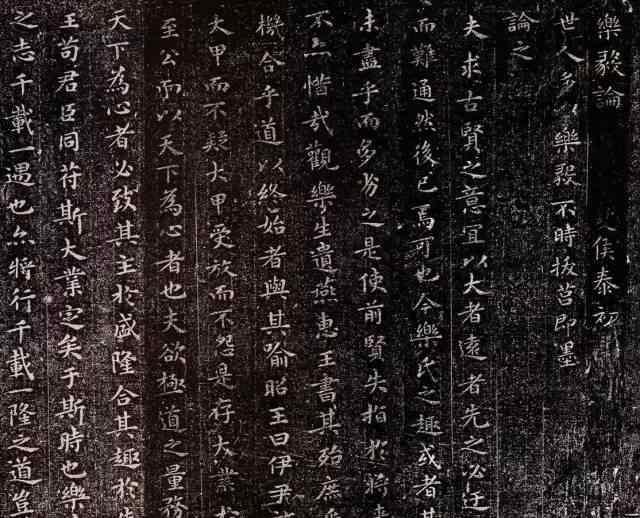 樂毅論
侯泰初
世人多以樂毅不時拔莒即墨
論之
夫求古賢之意宜以大者遠者先之必迂
而難通然後已焉可也今樂氏之趣或者其
未盡乎而多劣之是使前賢失指於將來
不亦惜哉觀樂生遺燕惠王書其殆庶乎
機合乎道以終始者與其喻昭王曰伊尹
大甲而不疑大甲受放而不怨是存大業於
至公而以天下為心者也夫欲極道之量務
天下為心者必致其主於盛隆合其趣於先
王苟君臣同苻斯大業定矣于斯時也樂
之志千載一遇也亦將行千載一隆之道豈